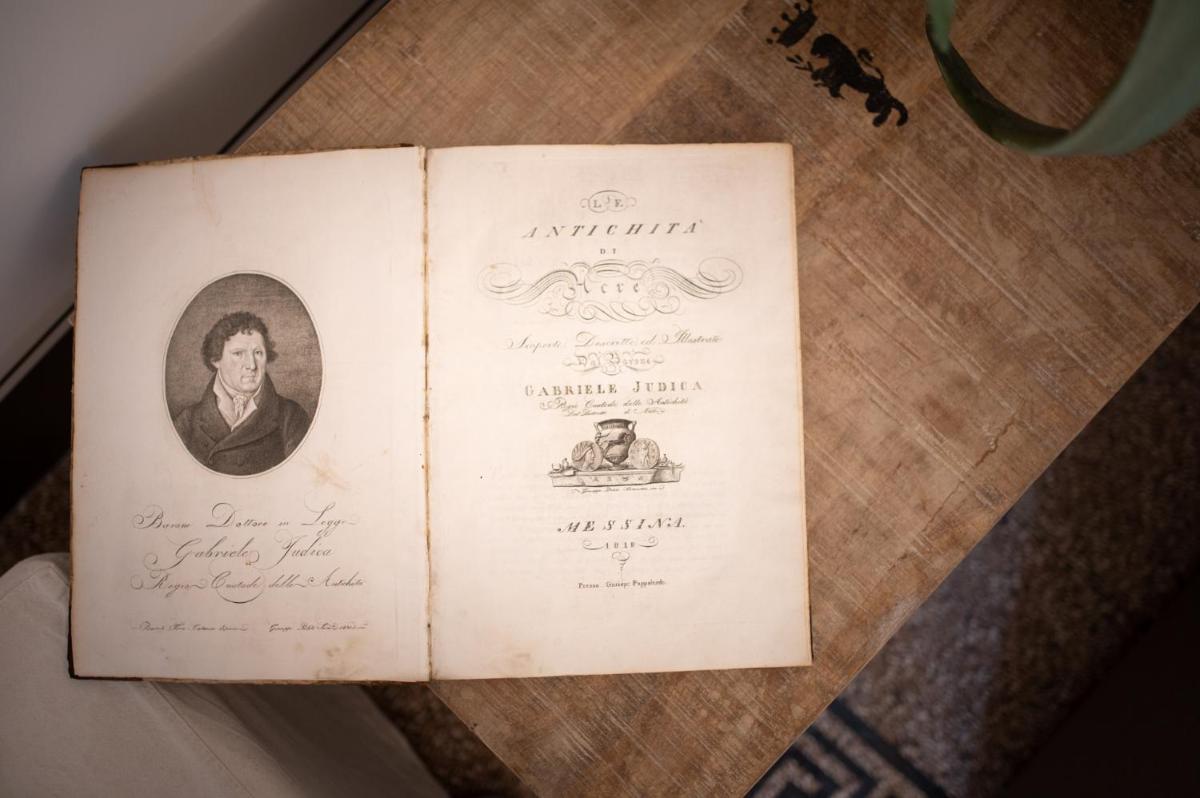 Barone Dottore in Legge
Gabriele Judica
Regio Custode delle Antichità
LE
ANTICHITA'
DI
Acre
Scoperte Descritte ed Illustrate
Dal Barone
GABRIELE JUDICA
Regio Custode delle Antichità
MESSINA.
1819
Presso Giuseppe Pappalardo.